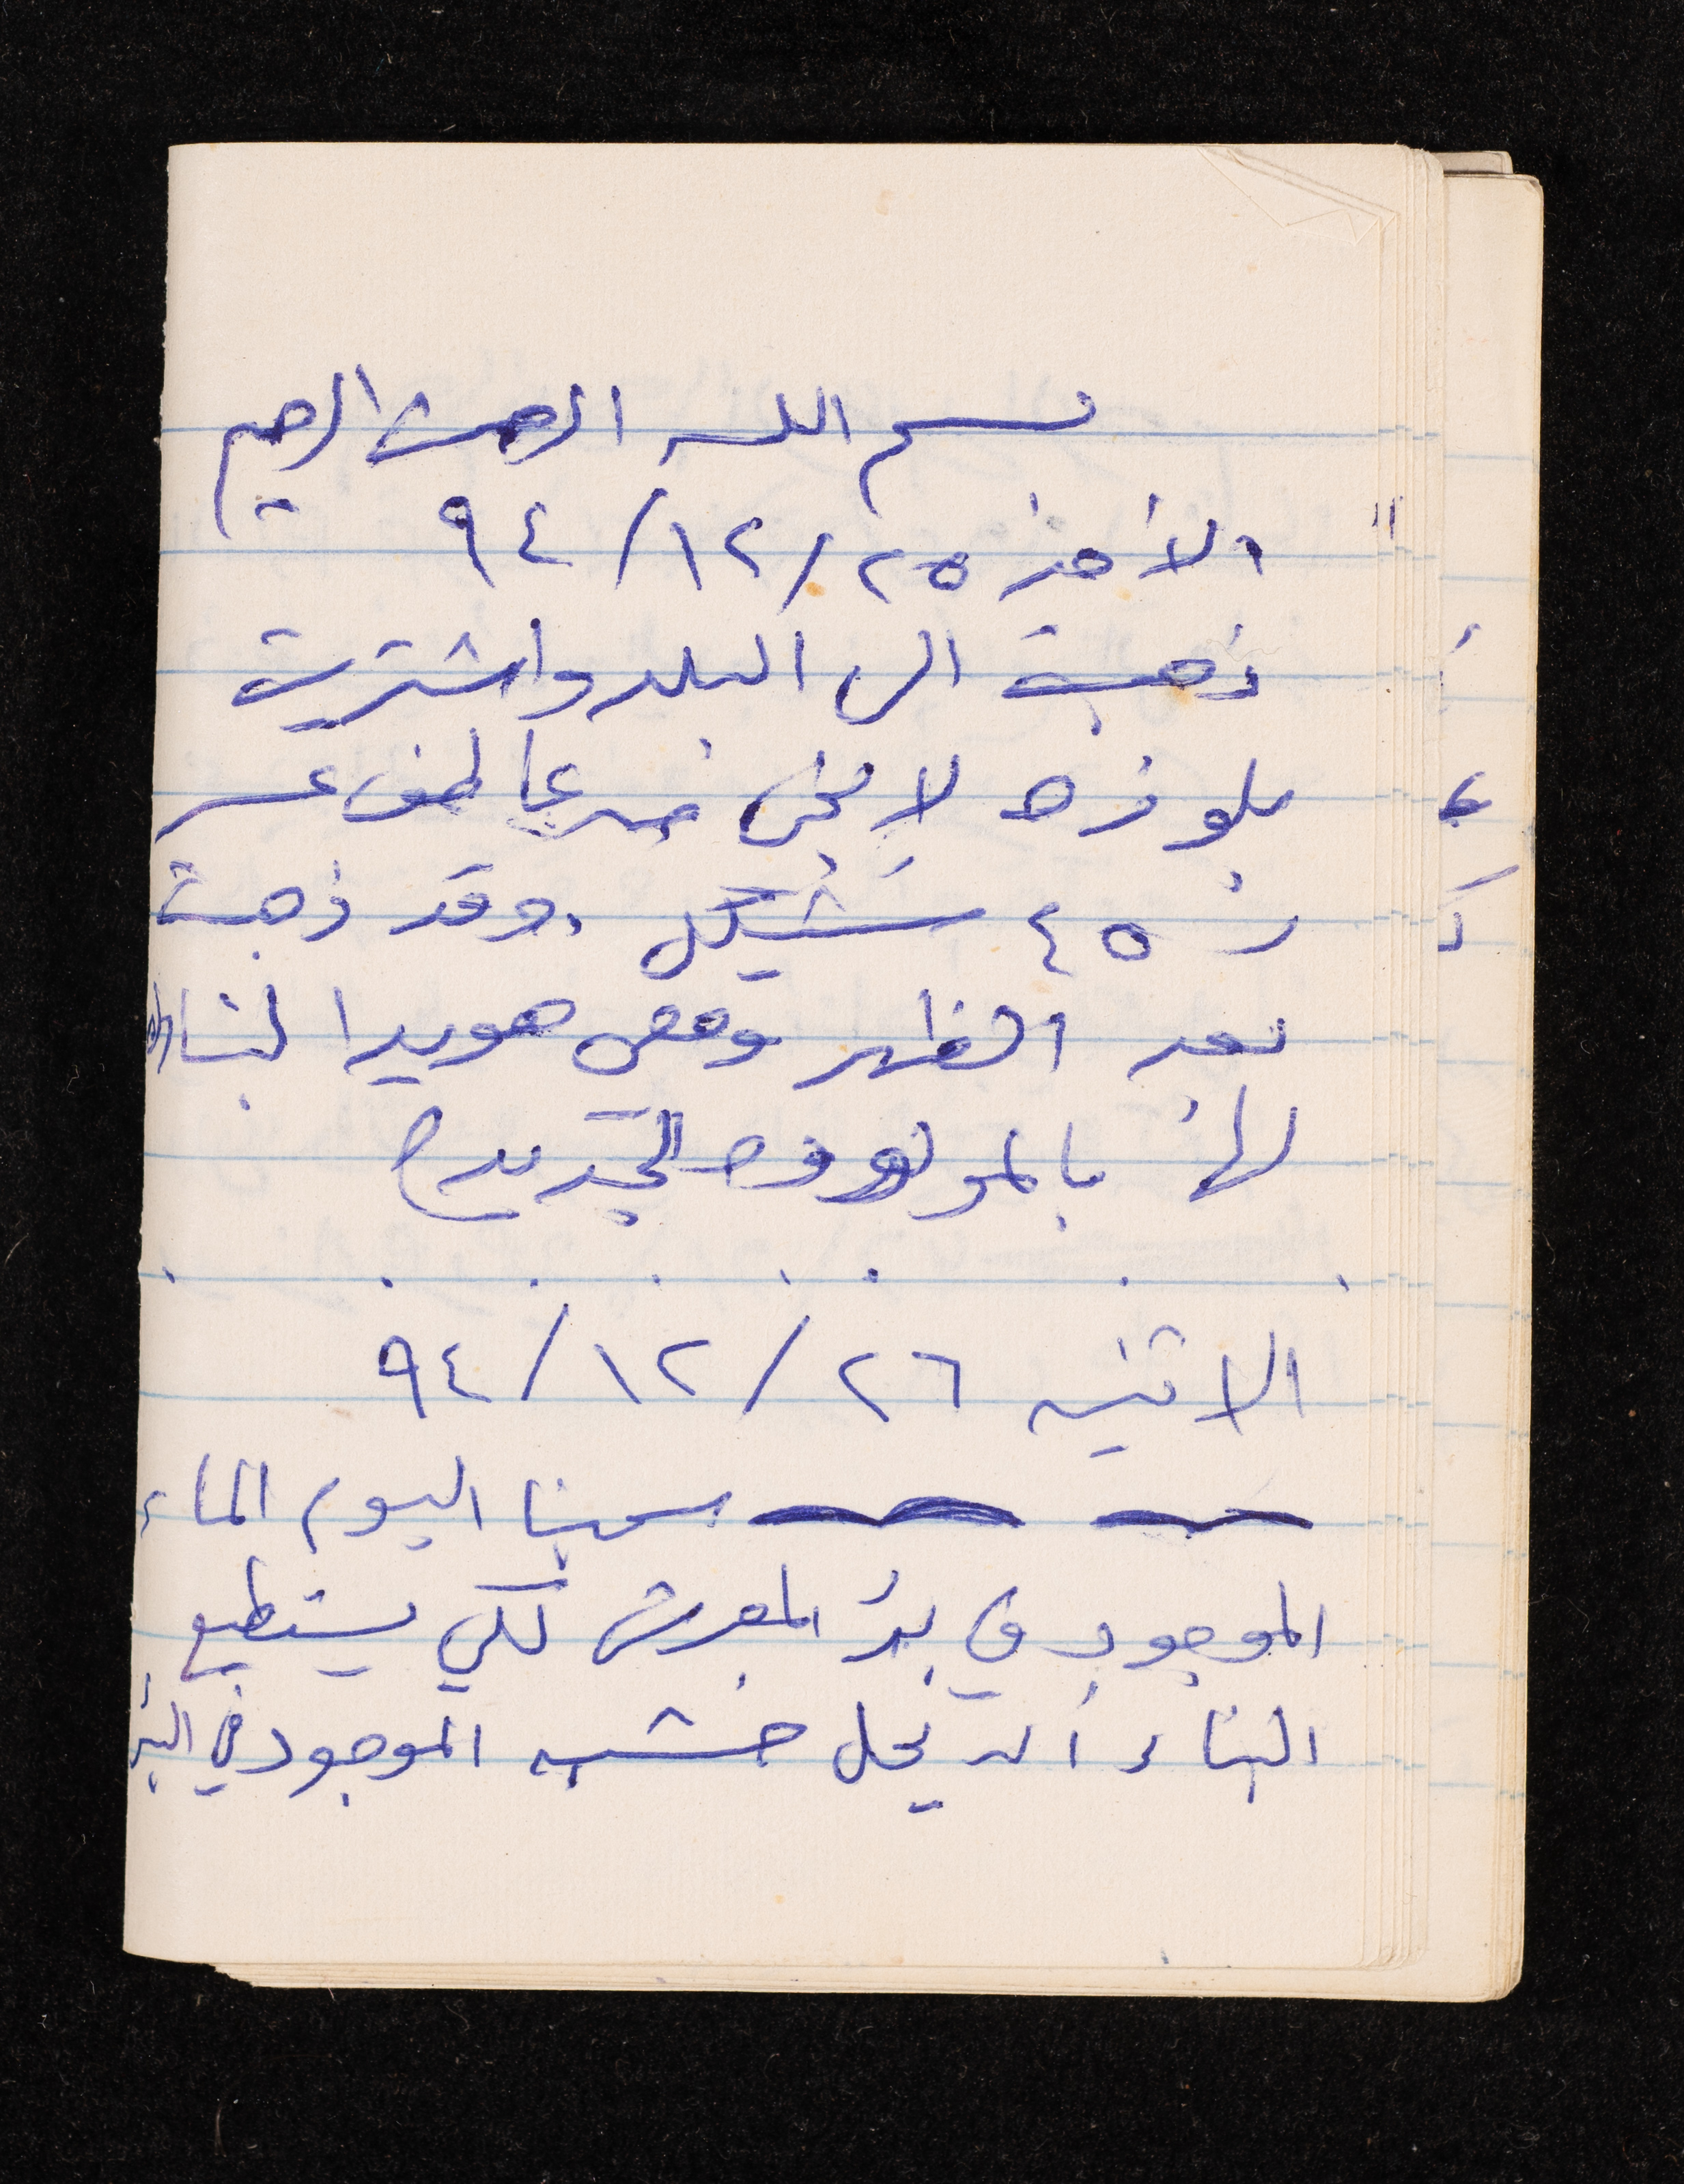 بسم الله الرحمن الرحيم
الأحد ٢٥/١٢/٩٤
ذهبت الى البلد واشتريت
بلوزه لا من عاطف
ب ٤٥ شيكل . وقد ذهبت
بعد الظهر ومعي هويدا
لها بالمولوده الجديده
. . . . . . . .
الاثنين ٢٦/١٢/٩٤
سحبنا اليوم الماء
الموجود في بئر المعرش لكي يستطيع
البناء أن يحل خشبه الموجود في البئر